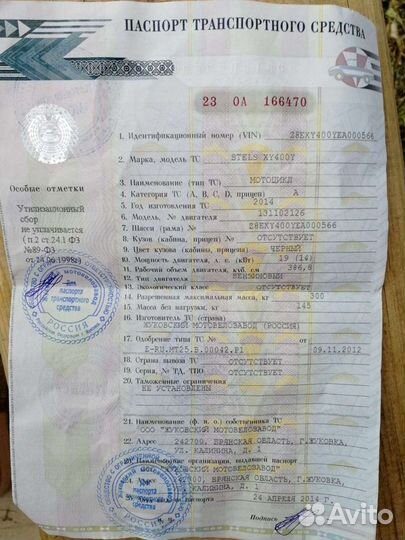 ПАСПОРТ ТРАНСПОРТНОГО СРЕДСТВА
23 ОА 166470
1. Идентификационный номер (VIN) Z8EXY400YEA000566
2. Марка, модель ТС STELS XY400Y
3. Наименование (тип ТС) МОТОЦИКЛ
4. Категория ТС (A, B, C, D, прицеп) A
5. Год изготовления ТС 2014
6. Модель, № двигателя 131102126
7. Шасси (рама) № Z8EXY400YEA000566
8. Кузов (кабина, прицеп) № ОТСУТСТВУЕТ
9. Цвет кузова (кабины, прицепа) ЧЕРНЫЙ
10. Мощность двигателя, л. с. (кВт) 19 (14)
11. Рабочий объем двигателя, куб. см 386,8
12. Тип двигателя БЕНЗИНОВЫЙ
13. Экологический класс ОТСУТСТВУЕТ
14. Разрешенная максимальная масса, кг 300
15. Масса без нагрузки, кг 145
16. Изготовитель ТС (страна)
ЖУКОВСКИЙ МОТОВЕЛОЗАВОД (РОССИЯ)
17. Одобрение типа ТС №
E-RU.MT25.B.00042.P1 09.11.2012
18. Страна вывоза ТС ОТСУТСТВУЕТ
19. Серия, № ТД, ТПО ОТСУТСТВУЕТ
20. Таможенные ограничения
НЕ УСТАНОВЛЕНЫ
21. Наименование (ф. и. о.) собственника ТС
ООО "ЖУКОВСКИЙ МОТОВЕЛОЗАВОД"
22. Адрес 242700, БРЯНСКАЯ ОБЛАСТЬ, Г.ЖУКОВКА,
УЛ. КАЛИНИНА, Д. 1
23. Наименование организации, выдавшей паспорт
ЖУКОВСКИЙ МОТОВЕЛОЗАВОД"
24. 242700, БРЯНСКАЯ ОБЛАСТЬ, Г.ЖУКОВКА,
КАЛИНИНА, Д. 1
25. Дата выдачи паспорта 24 АПРЕЛЯ 2014 г.
Подпись
Особые отметки
Утилизационный
сбор
не уплачивается
(п.2 ст.24.1 ФЗ
№89-ФЗ
от 24.06.1998г.)
Для
паспорта
транспортного
средства
РОССИЯ
Для
паспорта
транспортного
средства
РОССИЯ
Avito